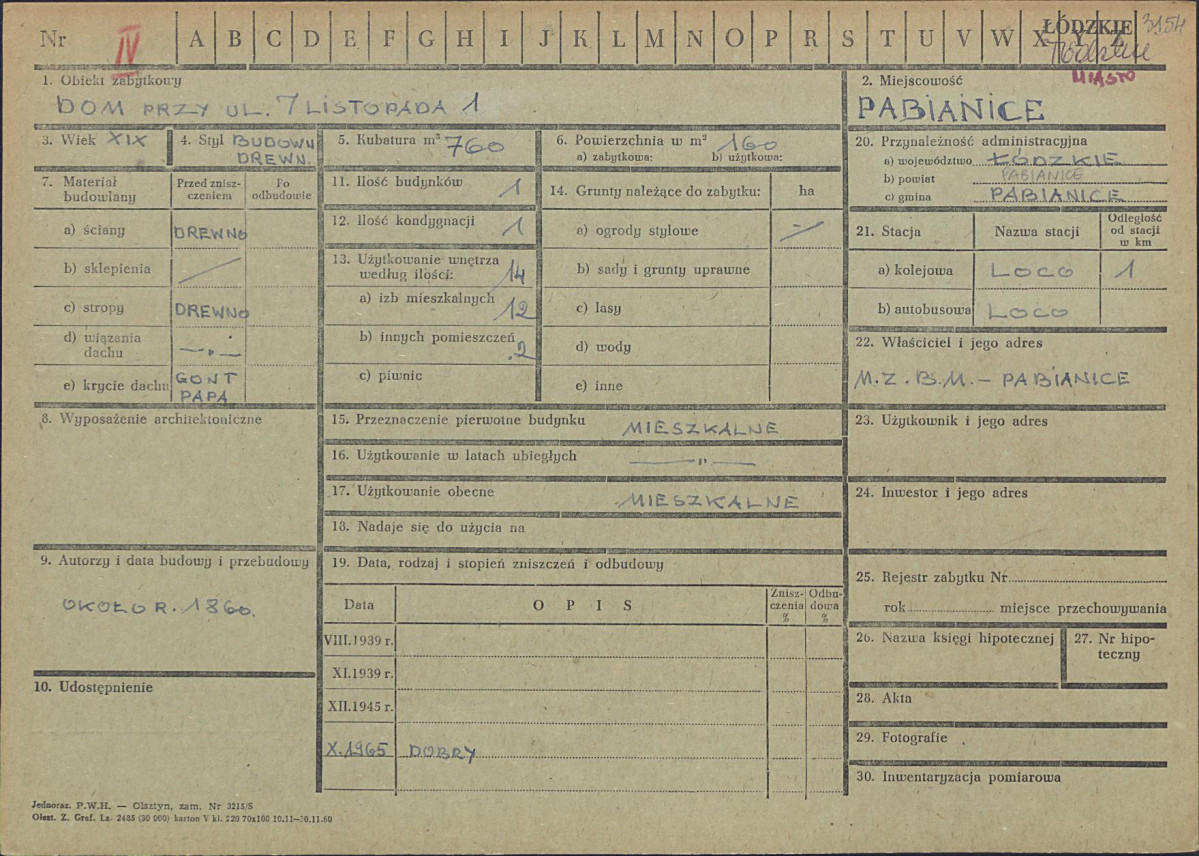 Nr IV A B C D E F G H I J K L M N O P R S T U V W X Y Z ŁÓDZKIE 3154
MIASTO
1. Obiekt zabytkowy
DOM PRZY UL. 7 LISTOPADA 1
2. Miejscowość
PABIANICE
3. Wiek XIX
4. Styl BUDOWN
DREWN.
5. Kubatura m³ 760
6. Powierzchnia w m² 160
a) zabytkowa: b) użytkowa:
7. Materiał budowlany
Przed zniszczeniem
Po odbudowie
a) ściany DREWNO
b) sklepienia /
c) stropy DREWNO
d) wiązania
dachu —„—
e) krycie dachu GONT
PAPA
11. Ilość budynków 1
12. Ilość kondygnacji 1
13. Użytkowanie wnętrza
według ilości: 14
a) izb mieszkalnych 12
b) innych pomieszczeń 2
c) piwnic
14. Grunty należące do zabytku: ha
a) ogrody stylowe —
b) sady i grunty uprawne
c) lasy
d) wody
e) inne
20. Przynależność administracyjna
a) województwo ŁÓDZKIE
b) powiat PABIANICE
c) gmina PABIANICE
21. Stacja Nazwa stacji Odległość
od stacji
w km
a) kolejowa LOCO 1
b) autobusowa LOCO
22. Właściciel i jego adres
M.Z.B.M. – PABIANICE
8. Wyposażenie architektoniczne
15. Przeznaczenie pierwotne budynku MIESZKALNE
16. Użytkowanie w latach ubiegłych —„—
17. Użytkowanie obecne MIESZKALNE
18. Nadaje się do użycia na
23. Użytkownik i jego adres
24. Inwestor i jego adres
9. Autorzy i data budowy i przebudowy
OKOŁO R. 1860.
10. Udostępnienie
19. Data, rodzaj i stopień zniszczeń i odbudowy
Data OPIS Znisz-
czenia
% Odbu-
dowa
%
VIII.1939 r.
XI.1939 r.
XII.1945 r.
X.1965 DOBRY
25. Rejestr zabytku Nr
rok miejsce przechowywania
26. Nazwa księgi hipotecznej
27. Nr hipo-
teczny
28. Akta
29. Fotografie
30. Inwentaryzacja pomiarowa
Jednoraz. P.W.H. — Olsztyn, zam. Nr 3215/S
Olszt. Z. Graf. Lz. 2485 (30 000) karton V kl. 220 70x100 10.11—30.11.60